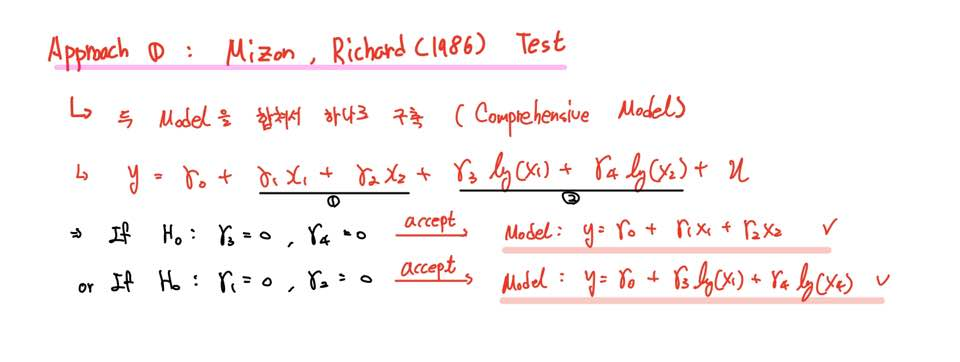 Approach ① : Mizon, Richard (1986) Test
↳ 두 Model을 합쳐서 하나로 구축 (Comprehensive Model)
↳ y = γ₀ + γ₁x₁ + γ₂x₂ + γ₃ log(x₁) + γ₄ log(x₂) + u
① ②
⇒ If H₀ : γ₃ = 0 , γ₄ = 0 accept → Model : y = γ₀ + γ₁x₁ + γ₂x₂ ✓
or If H₀ : γ₁ = 0 , γ₂ = 0 accept → Model : y = γ₀ + γ₃ log(x₁) + γ₄ log(x₄) ✓